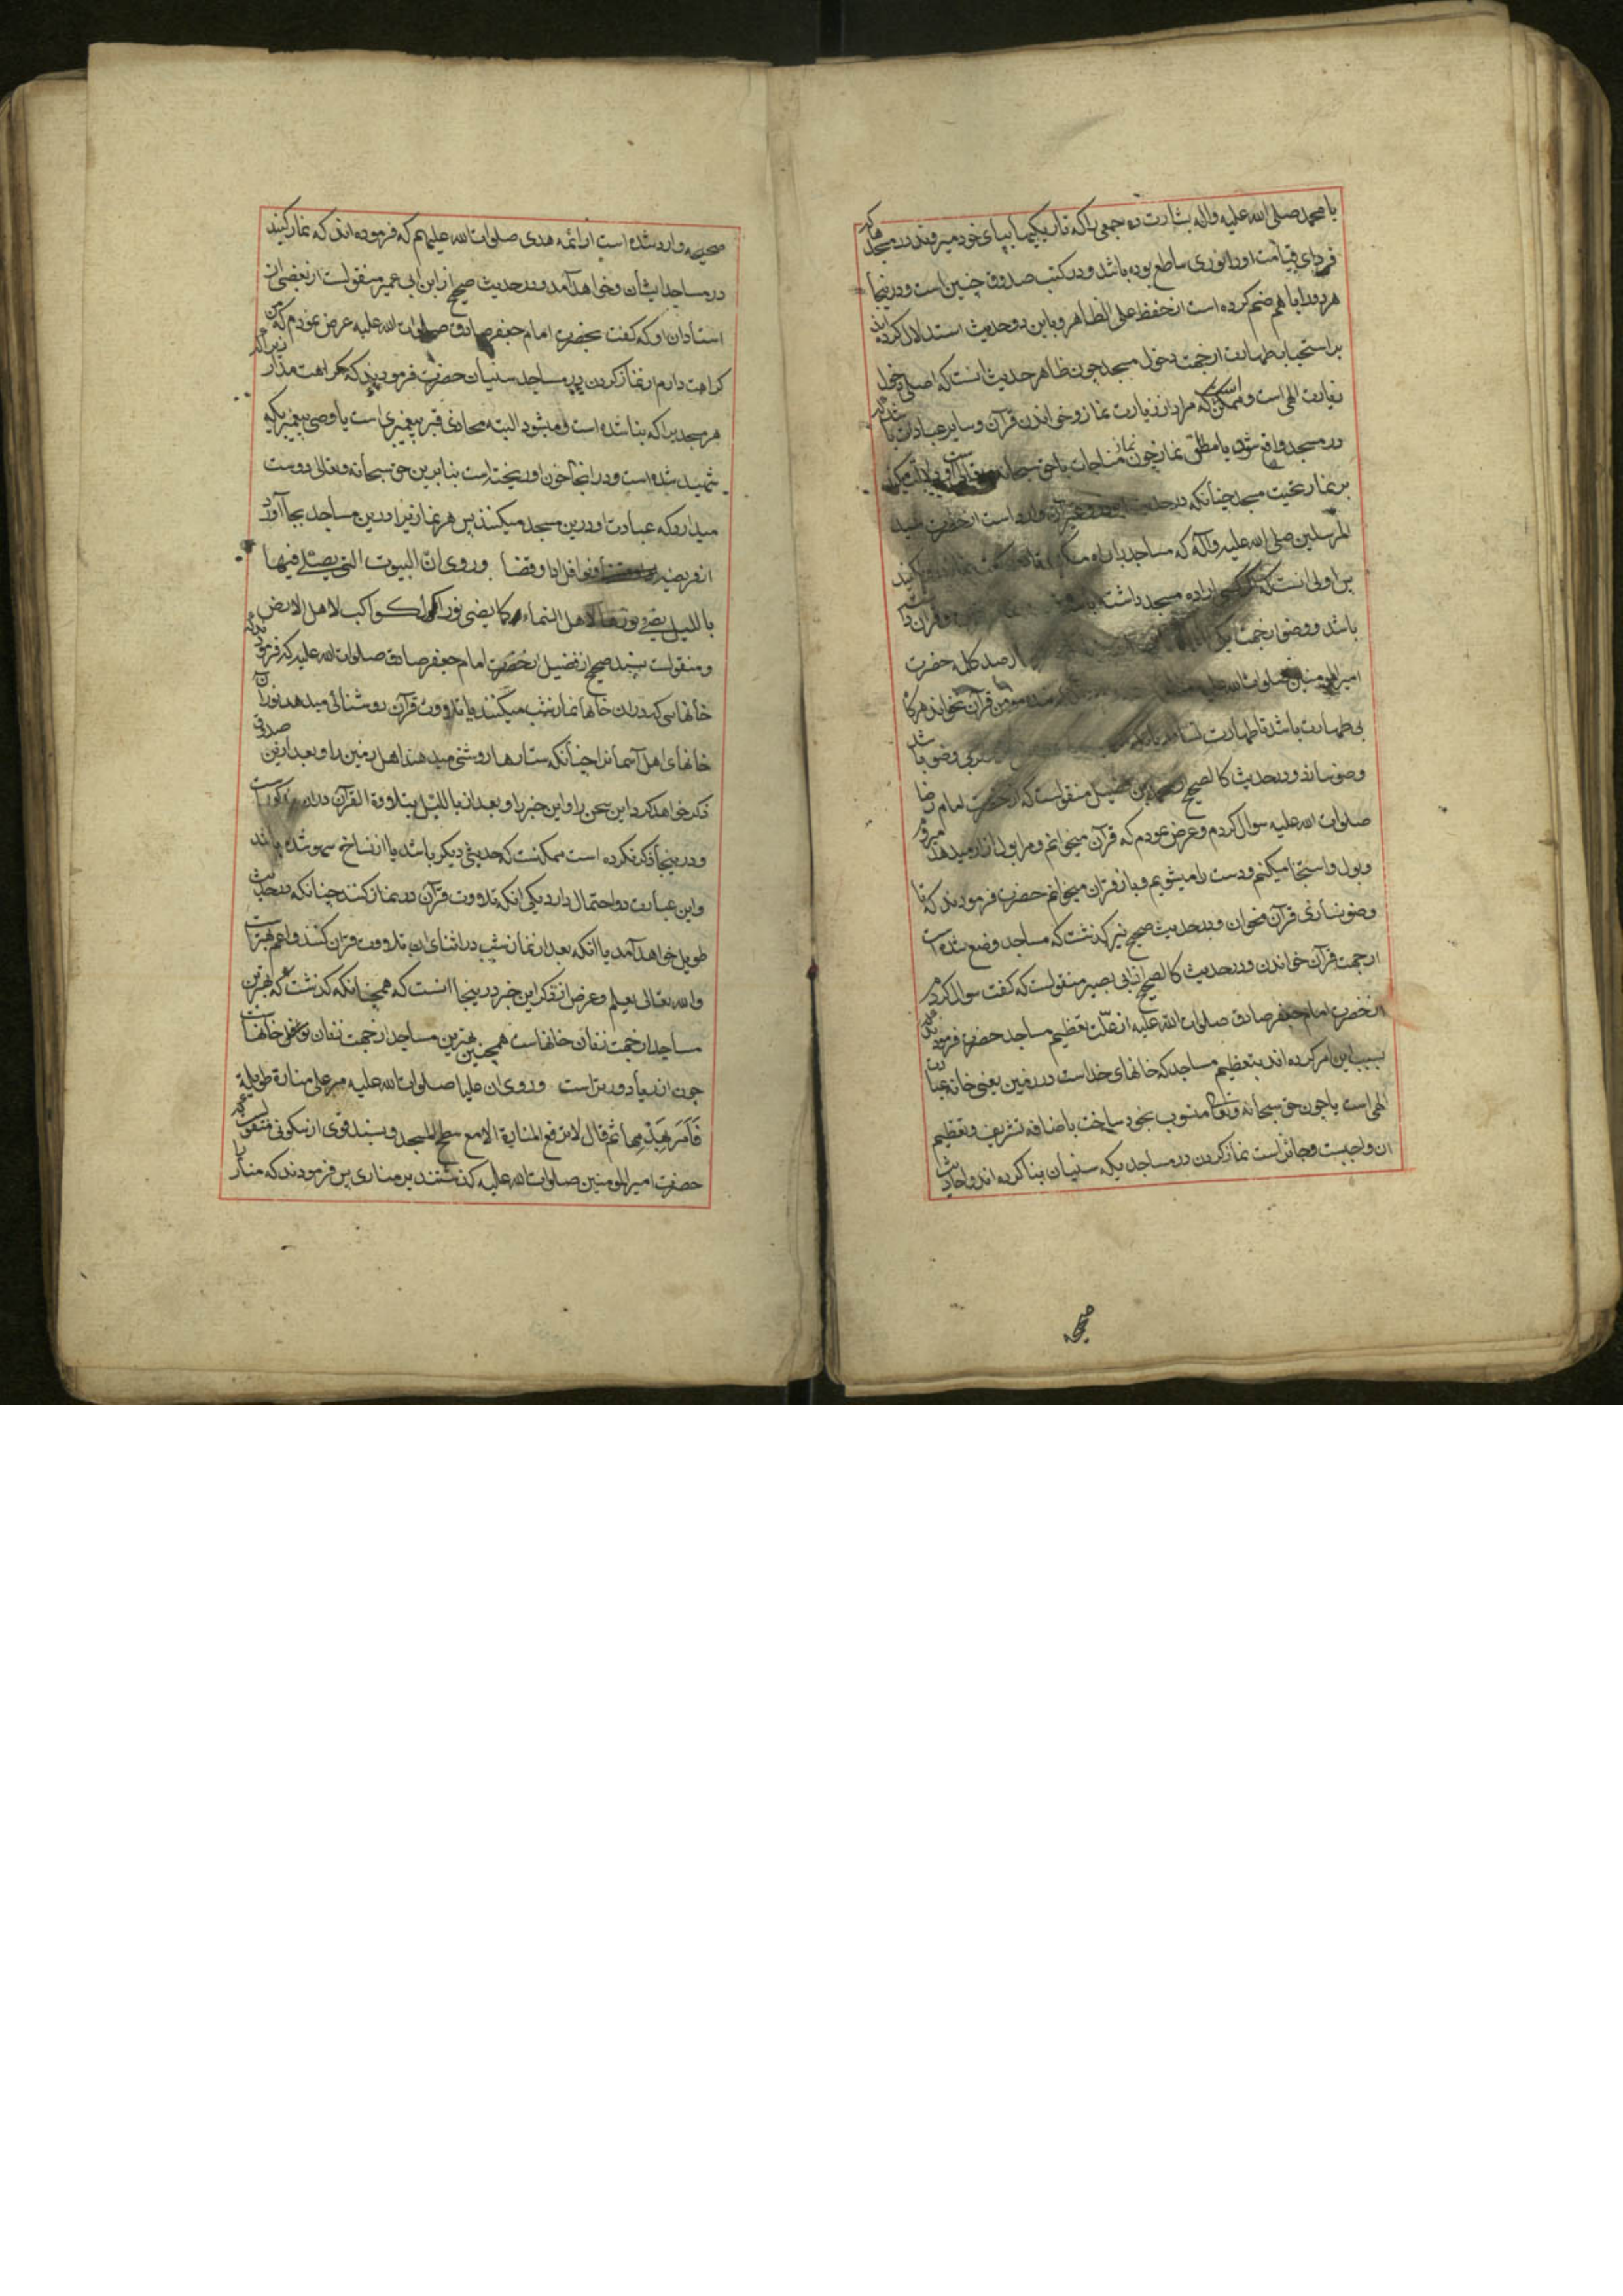 یا محمد صلی الله علیه واله بشارت ده جمعی را که تاریکیها بپای خود میروند در مسجد که
فردای قیامت او را نوری ساطع بوده باشد و در کتب صدوق چنین است و در اینجا
هر دو را با هم ضم کرده است از حفظ علی الظاهر و باین دو حدیث استدلال کرده اند
بر استحباب طهارت از جهت دخول مسجد چون ظاهر حدیث انست که اصل دخول
زیارت الهی است و ممکن است که مراد از زیارت نماز و خواندن قرآن و سایر عبادات باشد که
در مسجد واقع شود یا مطلق نماز چون نماز مناجات با حق سبحانه
بر نماز تحیت مسجد چنانکه در حدیث وارد است از حضرت سید
المرسلین صلی الله علیه وآله که مساجد را راه مکنید
پس اولی انست که اراده مسجد داشته باشد
باشد و وضو از جهت صد کله حضرت
امیر المومنین صلوات الله علیه قرآن نخواند هرگاه
بی طهارت باشد تا طهارت بی وضو باشد
وضو سازد و در حدیث کالصحیح از محمد بن فضیل منقولست که از حضرت امام رضا
صلوات الله علیه سوال کردم و عرض نمودم که قرآن میخوانم و مرا بول ازار میدهد میروم
و بول و استنجا میکنم و دست را میشویم و باز قرآن میخوانم حضرت فرمودند که تا
وضو نسازی قرآن مخوان و در حدیث صحیح نیز گذشت که مساجد وضع شده است
از جهت قرآن خواندن و در حدیث کالصحیح از ابی بصیر منقولست که گفت سوال کردم
از حضرت امام جعفر صادق صلوات الله علیه از علت تعظیم مساجد حضرت فرمودند که
بسبب این امر کرده اند بتعظیم مساجد که خانهای خداست در زمین یعنی خانه عبادت
الهی است یا چون حق سبحانه و تعالی منسوب بخود ساخت باضافه تشریف و تعظیم
ان واجبست و جائز است نماز کردن در مساجدیکه سنیان بنا کرده اند و احادیث
صحیحه
صحیحه وارد شده است از ائمه هدی صلوات الله علیهم که فرموده اند که نماز کنید
در مساجد ایشان و خواهد آمد و در حدیث صحیح از ابن ابی عمیر منقولست از بعضی از
استادان او که گفت بحضرت امام جعفر صادق صلوات الله علیه عرض نمودم که من
کراهت دارم از نماز کردن در مساجد سنیان حضرت فرمودند که کراهت مدار زیرا که
هر مسجدیرا که بنا شده است و میشود البته محاذی قبر پیغمبری است یا وصی پیغمبریکه
شهید شده است و در انجا خون او ریخته است بنابرین حق سبحانه و تعالی دوست
میدارد که عبادت او در ین مسجد میکنند پس هر نماز نیز او در ین مساجد بجا آورد
از فریضه و نوافل ادا و قضا وروی ان البیوت التی یصلی فیها
باللیل یضئ نورها لاهل السماء کما یضی نور الکواکب لاهل الارض
و منقولست بسند صحیح از فضیل از حضرت امام جعفر صادق صلوات الله علیه که فرمودند که
خانهایی که در ان خانها نماز شب میکنند یا تلاوت قرآن روشنائی میدهد نور آن
خانهای اهل آسمانرا چنانکه ستارها روشنی میدهند اهل زمین را و بعد ازین صدوق
ذکر خواهد کرد این سخن را و این خبر را و بعد از باللیل بتلاوة القرآن در ان مذکورست
و در ینجا ذکر نکرده است ممکنست که حدیثی دیگر باشد یا از نساخ سهو شده باشد
و این عبارت دو احتمال دارد یکی انکه تلاوت قرآن در نماز کنند چنانکه در حدیث
طویل خواهد آمد یا انکه بعد از نماز شب در اثنای ان تلاوت قرآن کنند و اعم بهتر است
والله تعالی یعلم و غرض از ذکر این خبر درینجا انست که همچنانکه گذشت که بهترین
مساجد از جهت زنان خانهاست همچنین بهترین مساجد از جهت زنان نوافل خانهاست
چون از ریا دورتر است وروی ان علیا صلوات الله علیه مر علی منارة طویلة
فأمر بهدمها ثم قال لا ترفع المنارة الا مع سطح المسجد و بسند قوی از سکونی منقولست که
حضرت امیر المومنین صلوات الله علیه گذشتند بر مناری پس فرمودند که منار را